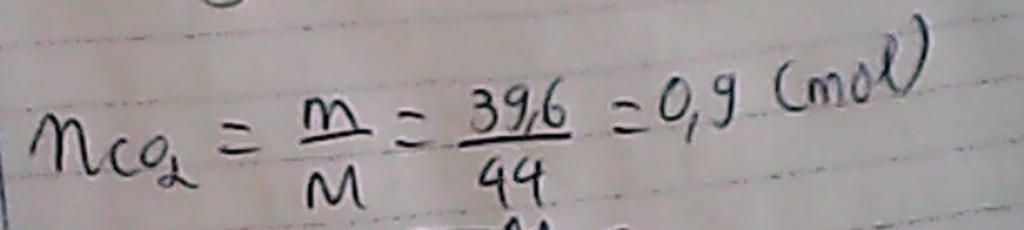 nCO₂ = m/M = 39,6/44 = 0,9 (mol)